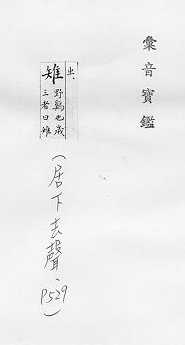 彙音寶鑑
出
雉
野鷄也歲
三者曰雉
(居下去聲、P529)